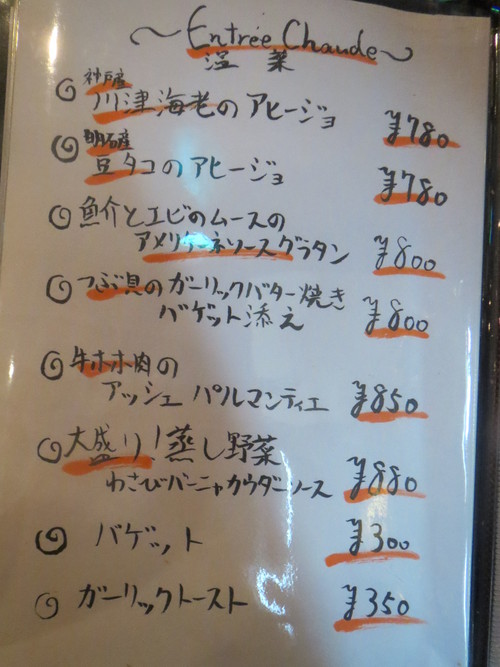 ~Entrée Chaude~
温菜
神戸産
川津海老のアヒージョ ¥780
明石産
豆タコのアヒージョ ¥780
魚介とエビのムースの
アメリケーネソースグラタン ¥800
つぶ貝のガーリックバター焼き
バゲット添え ¥800
牛ホホ肉の
アッシェ パルマンティエ ¥850
大盛り!蒸し野菜
わさびバーニャカウダーソース ¥880
バゲット ¥300
ガーリックトースト ¥350